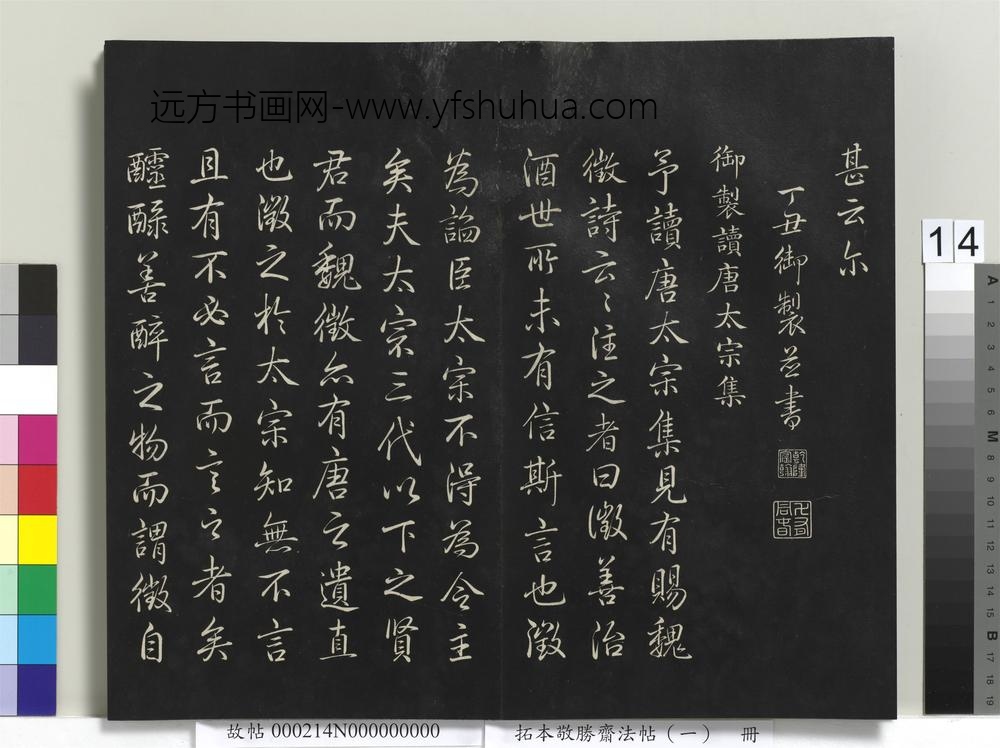 远方书画网-www.yfshuhua.com
甚云尔
丁丑御製並書
乾隆宸翰
御製讀唐太宗集
予讀唐太宗集見有賜魏
徵詩云〻注之者曰徵善治
酒世所未有信斯言也徵
為諂臣太宗不得為令主
矣夫太宗三代以下之賢
君而魏徵亦有唐之遺直
也徵之於太宗知無不言
且有不必言而言之者矣
醽醁善醉之物而謂徵自
14
A
1
2
3
4
5
6
M
8
9
10
11
12
13
14
15
B
17
18
19
故帖 000214N000000000
拓本敬勝齋法帖（一） 冊